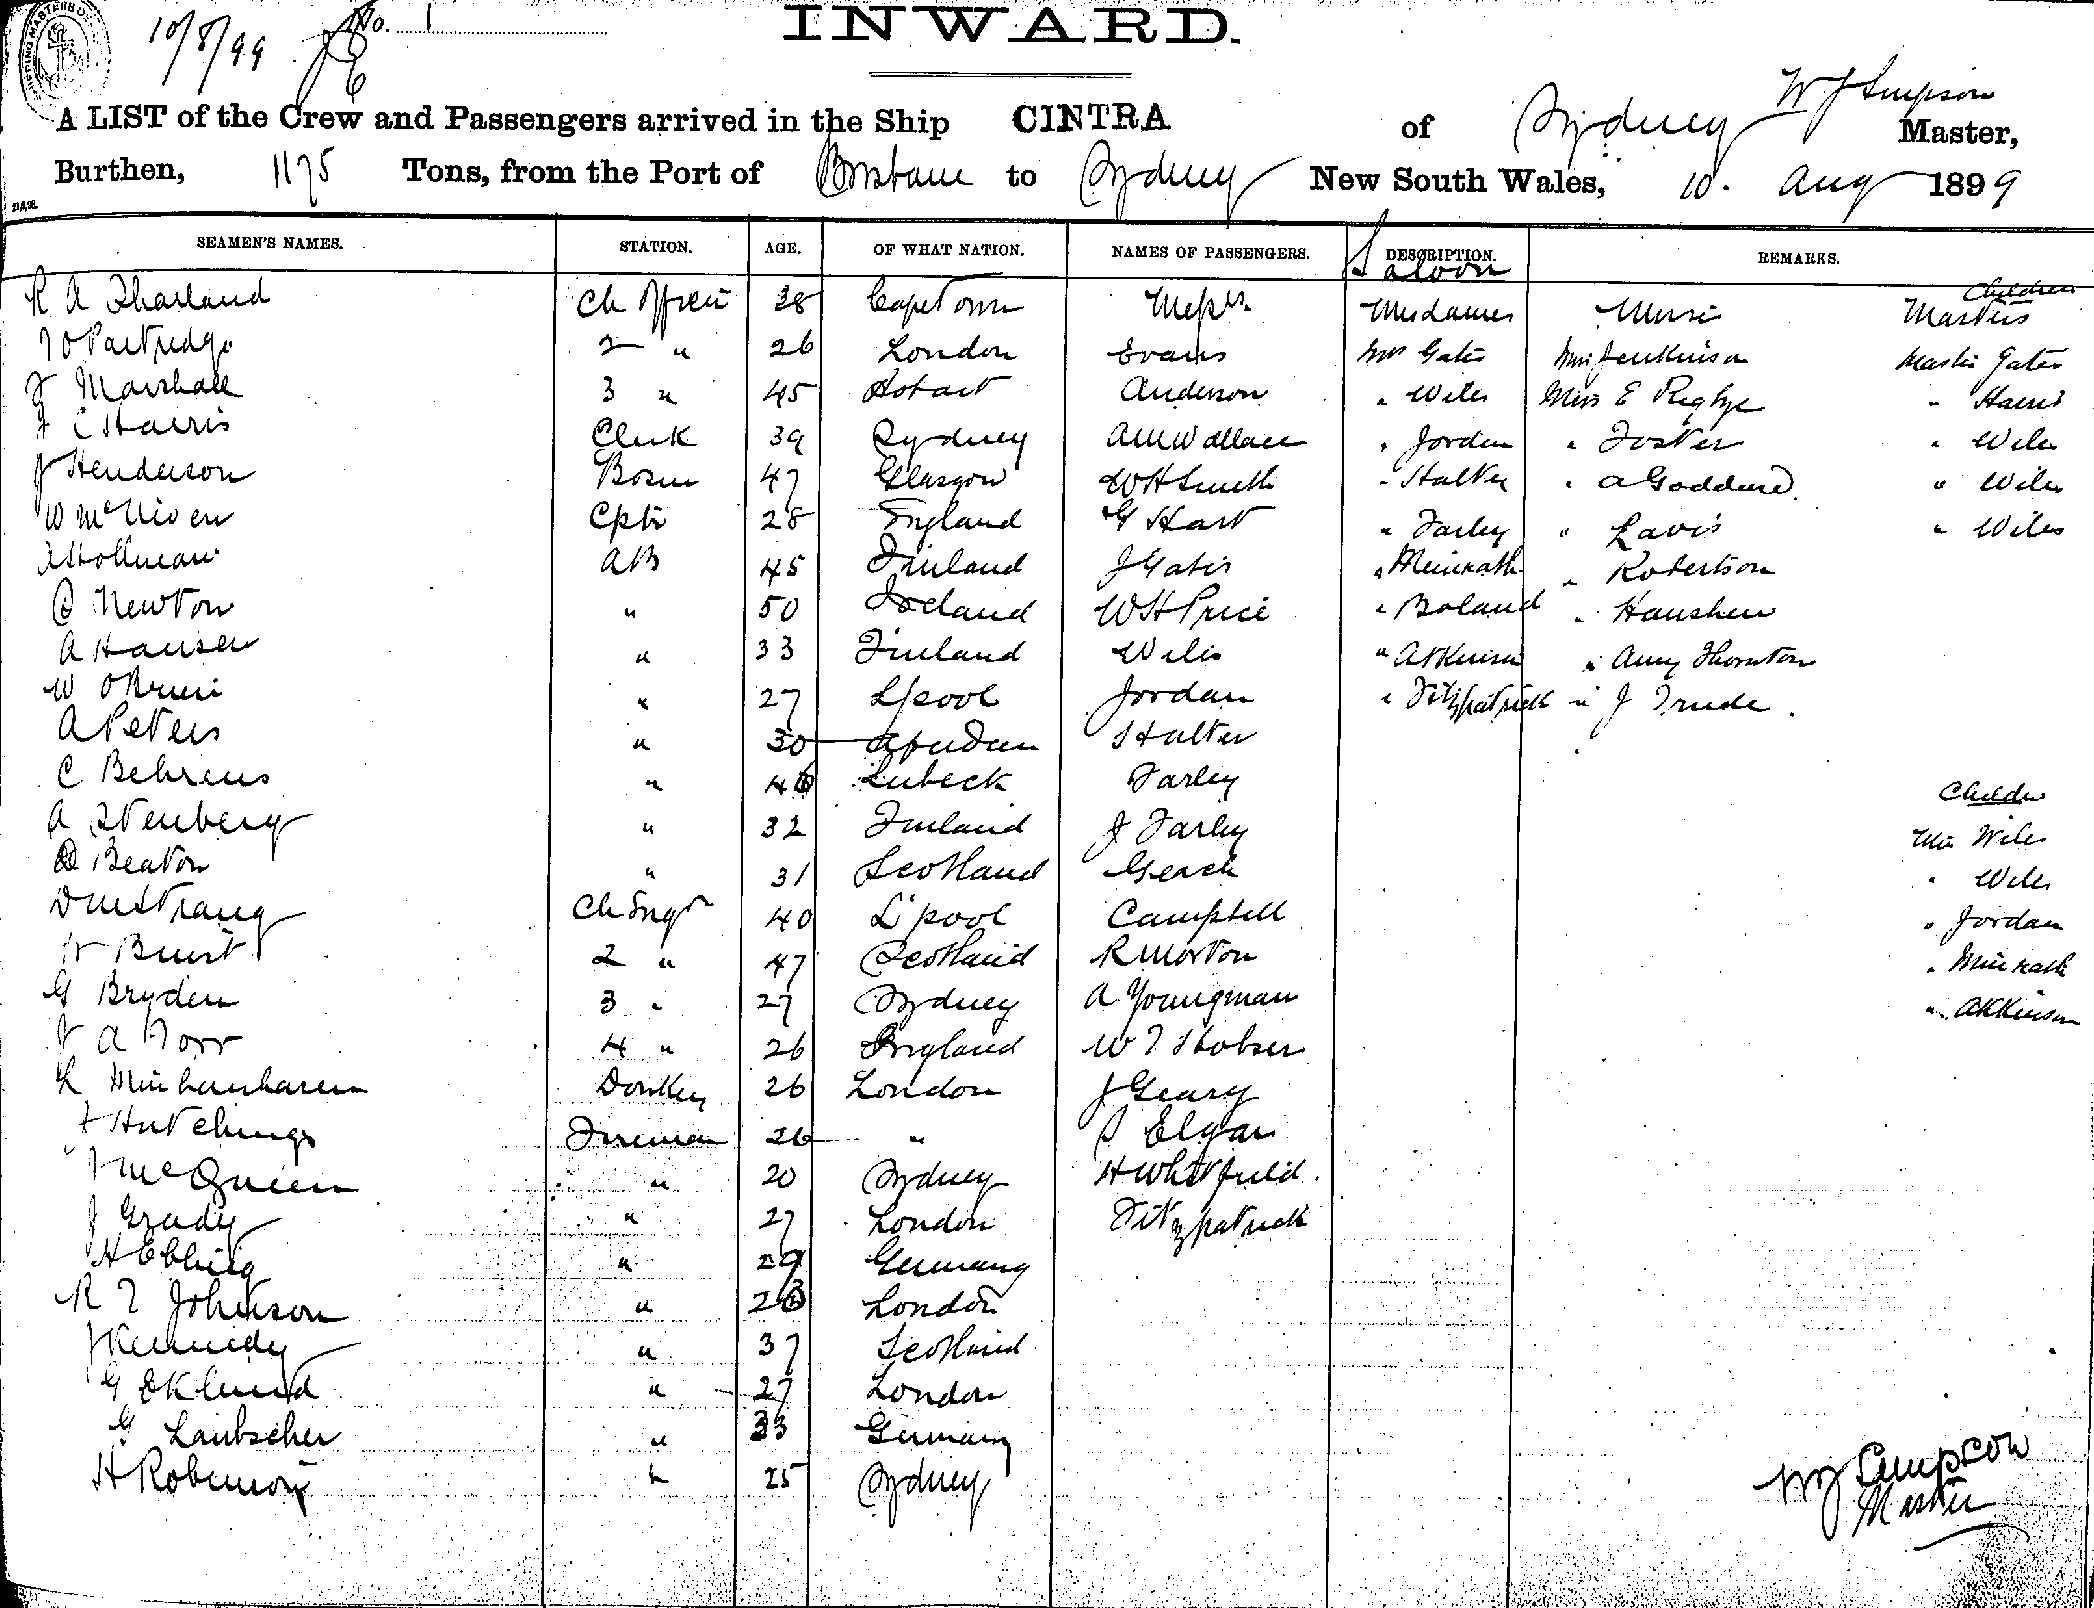 10/8/99 No. 1
INWARD.
W J Simpson
A LIST of the Crew and Passengers arrived in the Ship CINTRA of Sydney Master,
Burthen, 1175 Tons, from the Port of Brisbane to Sydney New South Wales, 10. Aug 1899
SEAMEN'S NAMES. STATION. AGE. OF WHAT NATION. NAMES OF PASSENGERS. DESCRIPTION. REMARKS.
Saloon
Children
R A Tharland Ch Officer 38 Cape Town Messrs Mesdames Masters
Partridge 2 " 26 London Evans Mrs Gates Miss Jenkinson Master Gates
J Marshall 3 " 45 Hobart Anderson " Wiles Miss E Rigbye " Harris
J C Harris Clerk 39 Sydney A M Wallace " Jorden " Foster " Wiles
J Henderson Bosun 47 Glasgow W H Smith " Halter " A Goddard. " Wiles
W McNiven 28 England G Hart " Farley " Lavis " Wiles
Hollman AB 45 Finland J Gates " Meinrath " Robertson
C Newton " 50 Iceland W H Price " Boland " Hanshen
A Hansen " 33 Finland Wiles " Atkinson " Amy Thornton
W OBrien " 27 L'pool Jordan " Fitzpatrick " J Trude.
A Peters " 30 Aberdeen Halter
C Behrens " Lubeck Farley
Children
A Stenberg " 32 Finland J Farley Miss Wiles
D Beaton " 31 Scotland Geach " Wiles
D McStrang Ch Engr 40 L'pool Campbell " Jordan
Buist 2 " 47 Scotland R Morton " Meinrath
G Bryden 3 " 27 Sydney A Youngman " Atkinson
A Dorr 4 " 26 England W T
Donkey 26 London J Geary
Hutchings Fireman 26 " Elgar
J McQueen " 20 Sydney H Whitfield.
J Grady " 27 London Fitzpatrick
H Ebbing " 29 Germany
R T Johnson " London
J Kennedy " 37 Scotland
G Eklund " 27 London
G Laubscher " 33 Germany
H Robinson " 25 Sydney
W J Simpson
Master